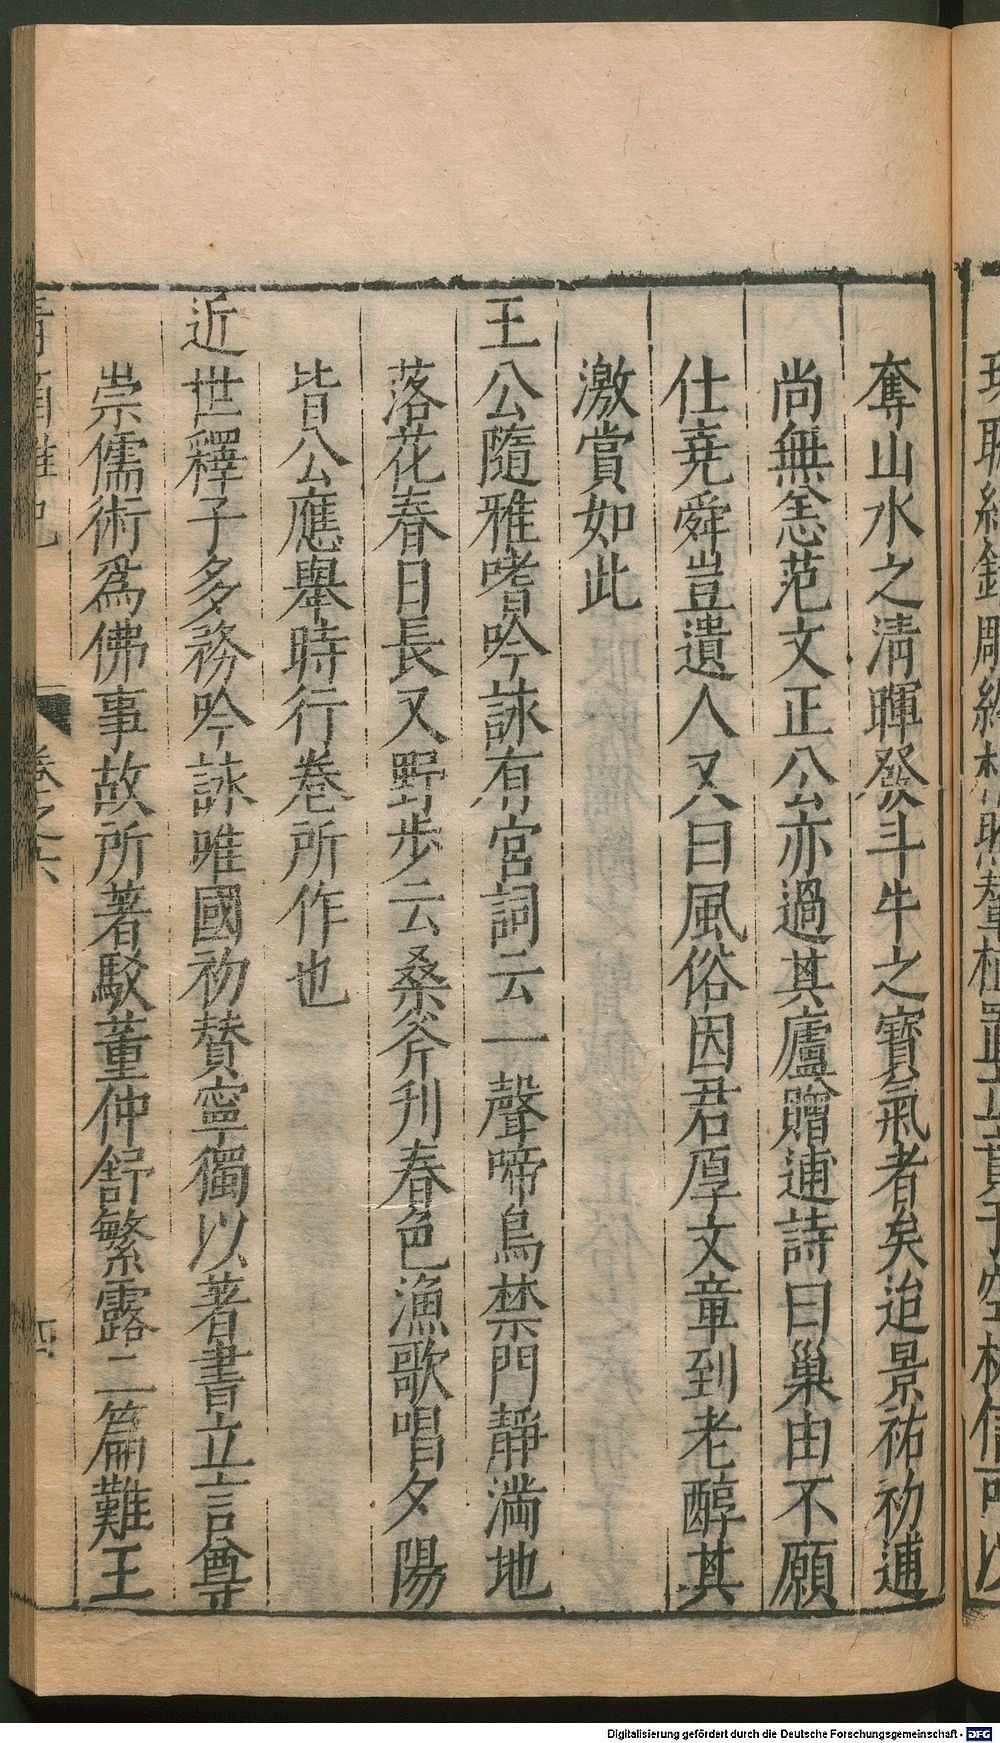 奪山水之清暉發斗牛之寶氣者矣迨景祐初逋
尚無恙范文正公亦過其廬贈逋詩曰巢由不願
仕堯舜豈遺人又曰風俗因君厚文章到老醇其
激賞如此
王公隨雅嗜吟詠有宮詞云一聲啼鳥禁門靜滿地
落花春日長又野步云桑斧刋春色漁歌唱夕陽
皆公應舉時行卷所作也
近世釋子多務吟詠唯國初賛寧獨以著書立言尊
崇儒術為佛事故所著駁董仲舒繁露二篇難王
卷之六
四
Digitalisierung gefördert durch die Deutsche Forschungsgemeinschaft - DFG